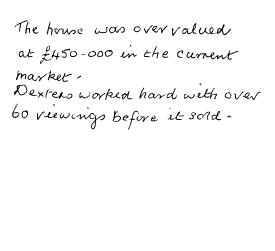 The house was over valued
at £450-000 in the current
market.
Dexters worked hard with over
60 viewings before it sold.